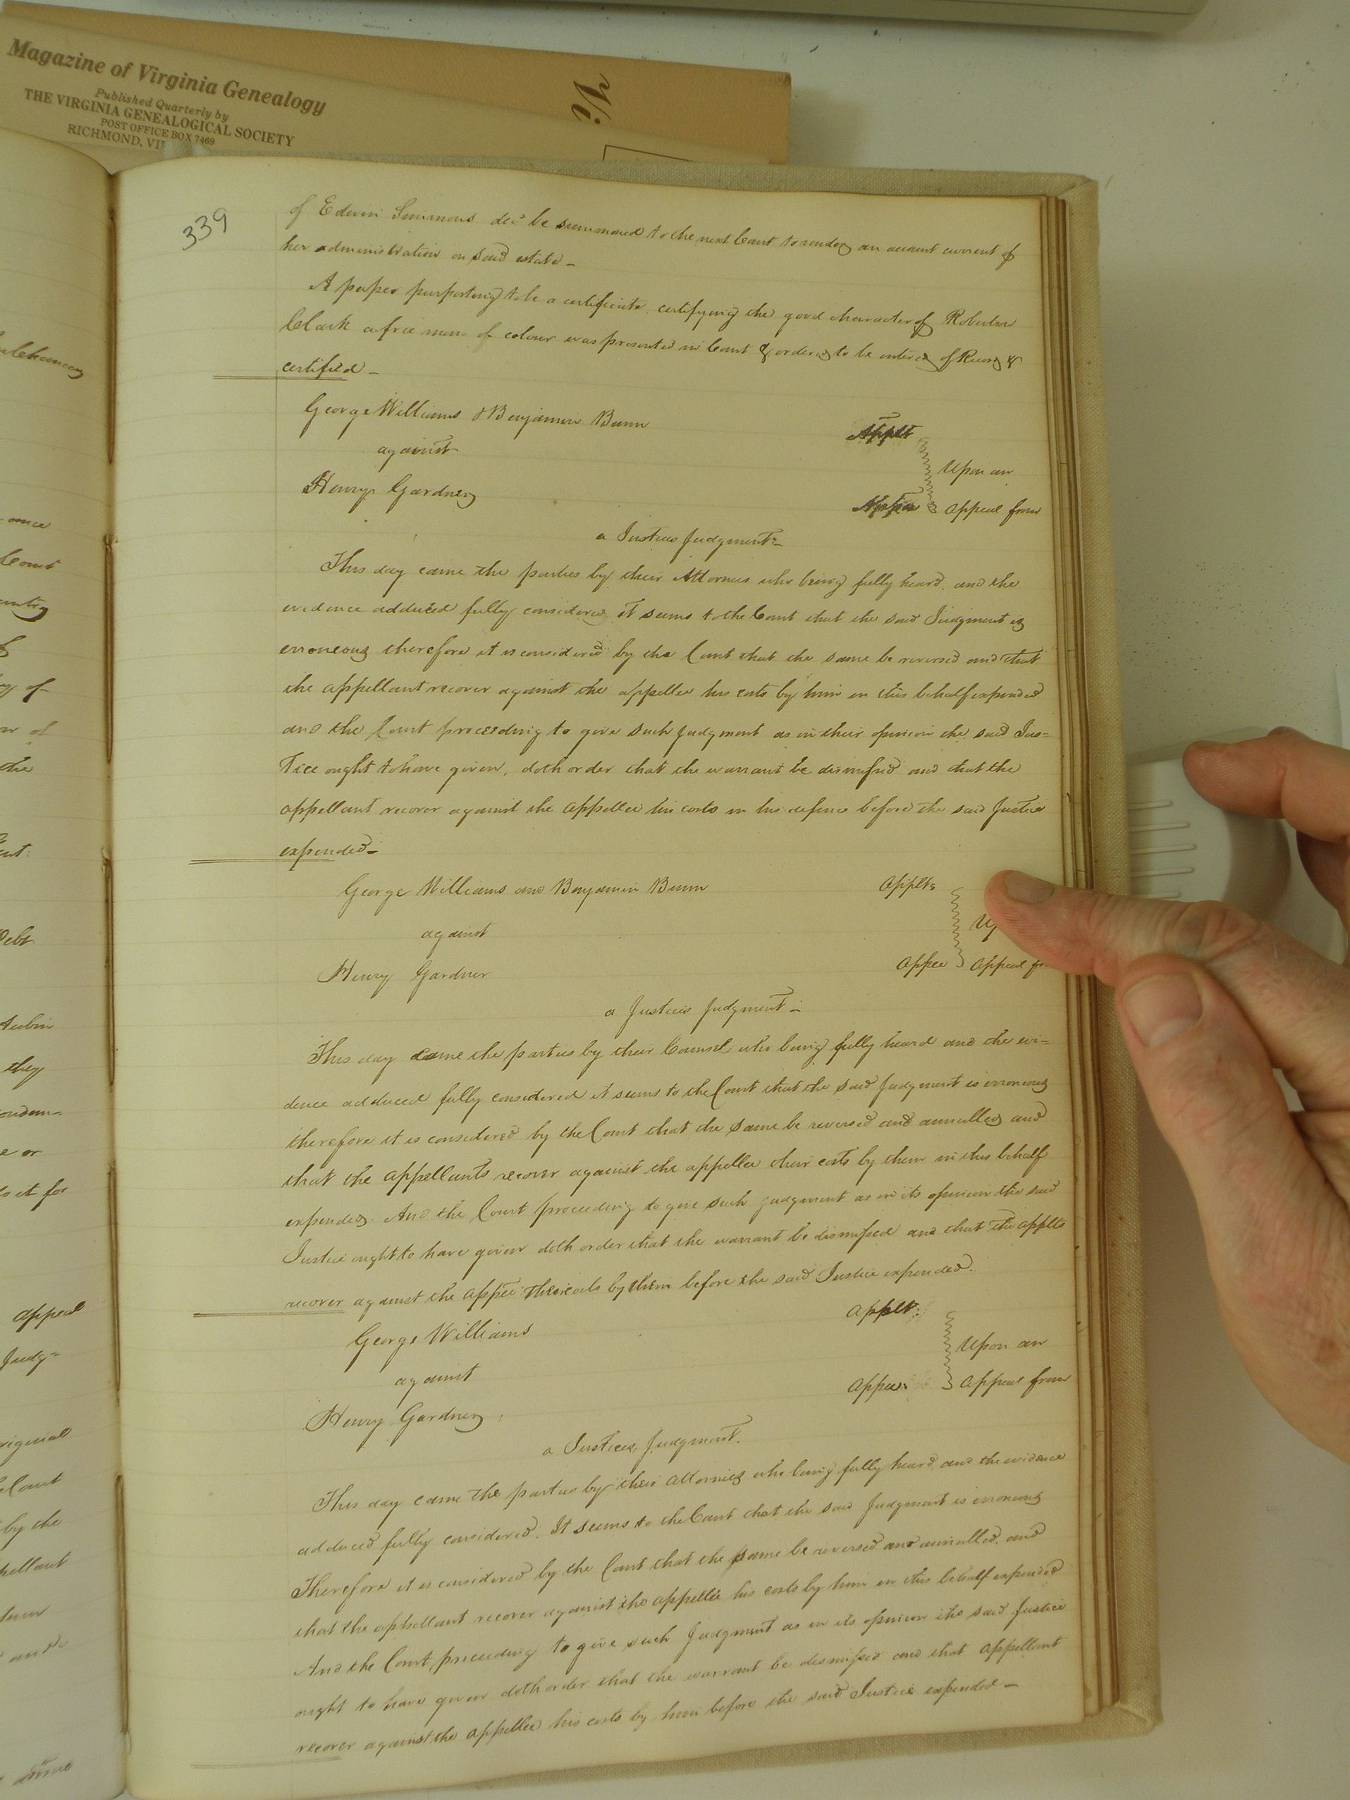 Magazine of Virginia Genealogy
Published Quarterly by
THE VIRGINIA GENEALOGICAL SOCIETY
POST OFFICE BOX 7469
RICHMOND, VI
339
of Edwin Simmons decd be summoned to the next Court to render an account current of
her administration on said estate –
A paper purporting to be a certificate certifying the good character of
Clark a free man of colour was presented in Court & ordered to be entered of Record &
certified –
George Williams & Benjamin Bunn Applt
against Upon an
Henry Gardner Appee appeal from
a Justices Judgment –
This day came the parties by their Attornies who being fully heard and the
evidence adduced fully considered it seems to the Court that the said Judgment is
erroneous therefore it is considered by the Court that the same be reversed and that
the appellant recover against the appellee his costs by him in this behalf expended
and the Court proceeding to give such judgment as in their opinion the said Jus=
tice ought to have given, doth order that the warrant be dismissed and that the
appellant recover against the appellee his costs in his defence before the said Justice
expended –
George Williams and Benjamin Bunn Applts
against Up
Henry Gardner Appee Appeal fr
a Justices Judgment –
This day came the parties by their Counsel who being fully heard and the evi–
dence adduced fully considered it seems to the Court that the said Judgment is erroneous
therefore it is considered by the Court that the same be reversed and annulled and
that the appellants recover against the appellee their costs by them in this behalf
expended. And the Court proceeding to give such judgment as in its opinion the said
Justice ought to have given doth order that the warrant be dismissed and that the applts
recover against the appee their costs by them before the said Justice expended.
George Williams Applt.
against Upon an
Henry Gardner Appee. Appeal from
a Justices Judgment.
This day came the parties by their attornies who being fully heard and the evidence
adduced fully considered. It seems to the Court that the said Judgment is erroneous
Therefore it is considered by the Court that the same be reversed and annulled and
that the appellant recover against the appellee his costs by him in this behalf expended
And the Court proceeding to give such Judgment as in its opinion the said Justice
ought to have given doth order that the warrant be dismissed and that appellant
recover against the appellee his costs by him before the said Justice expended –